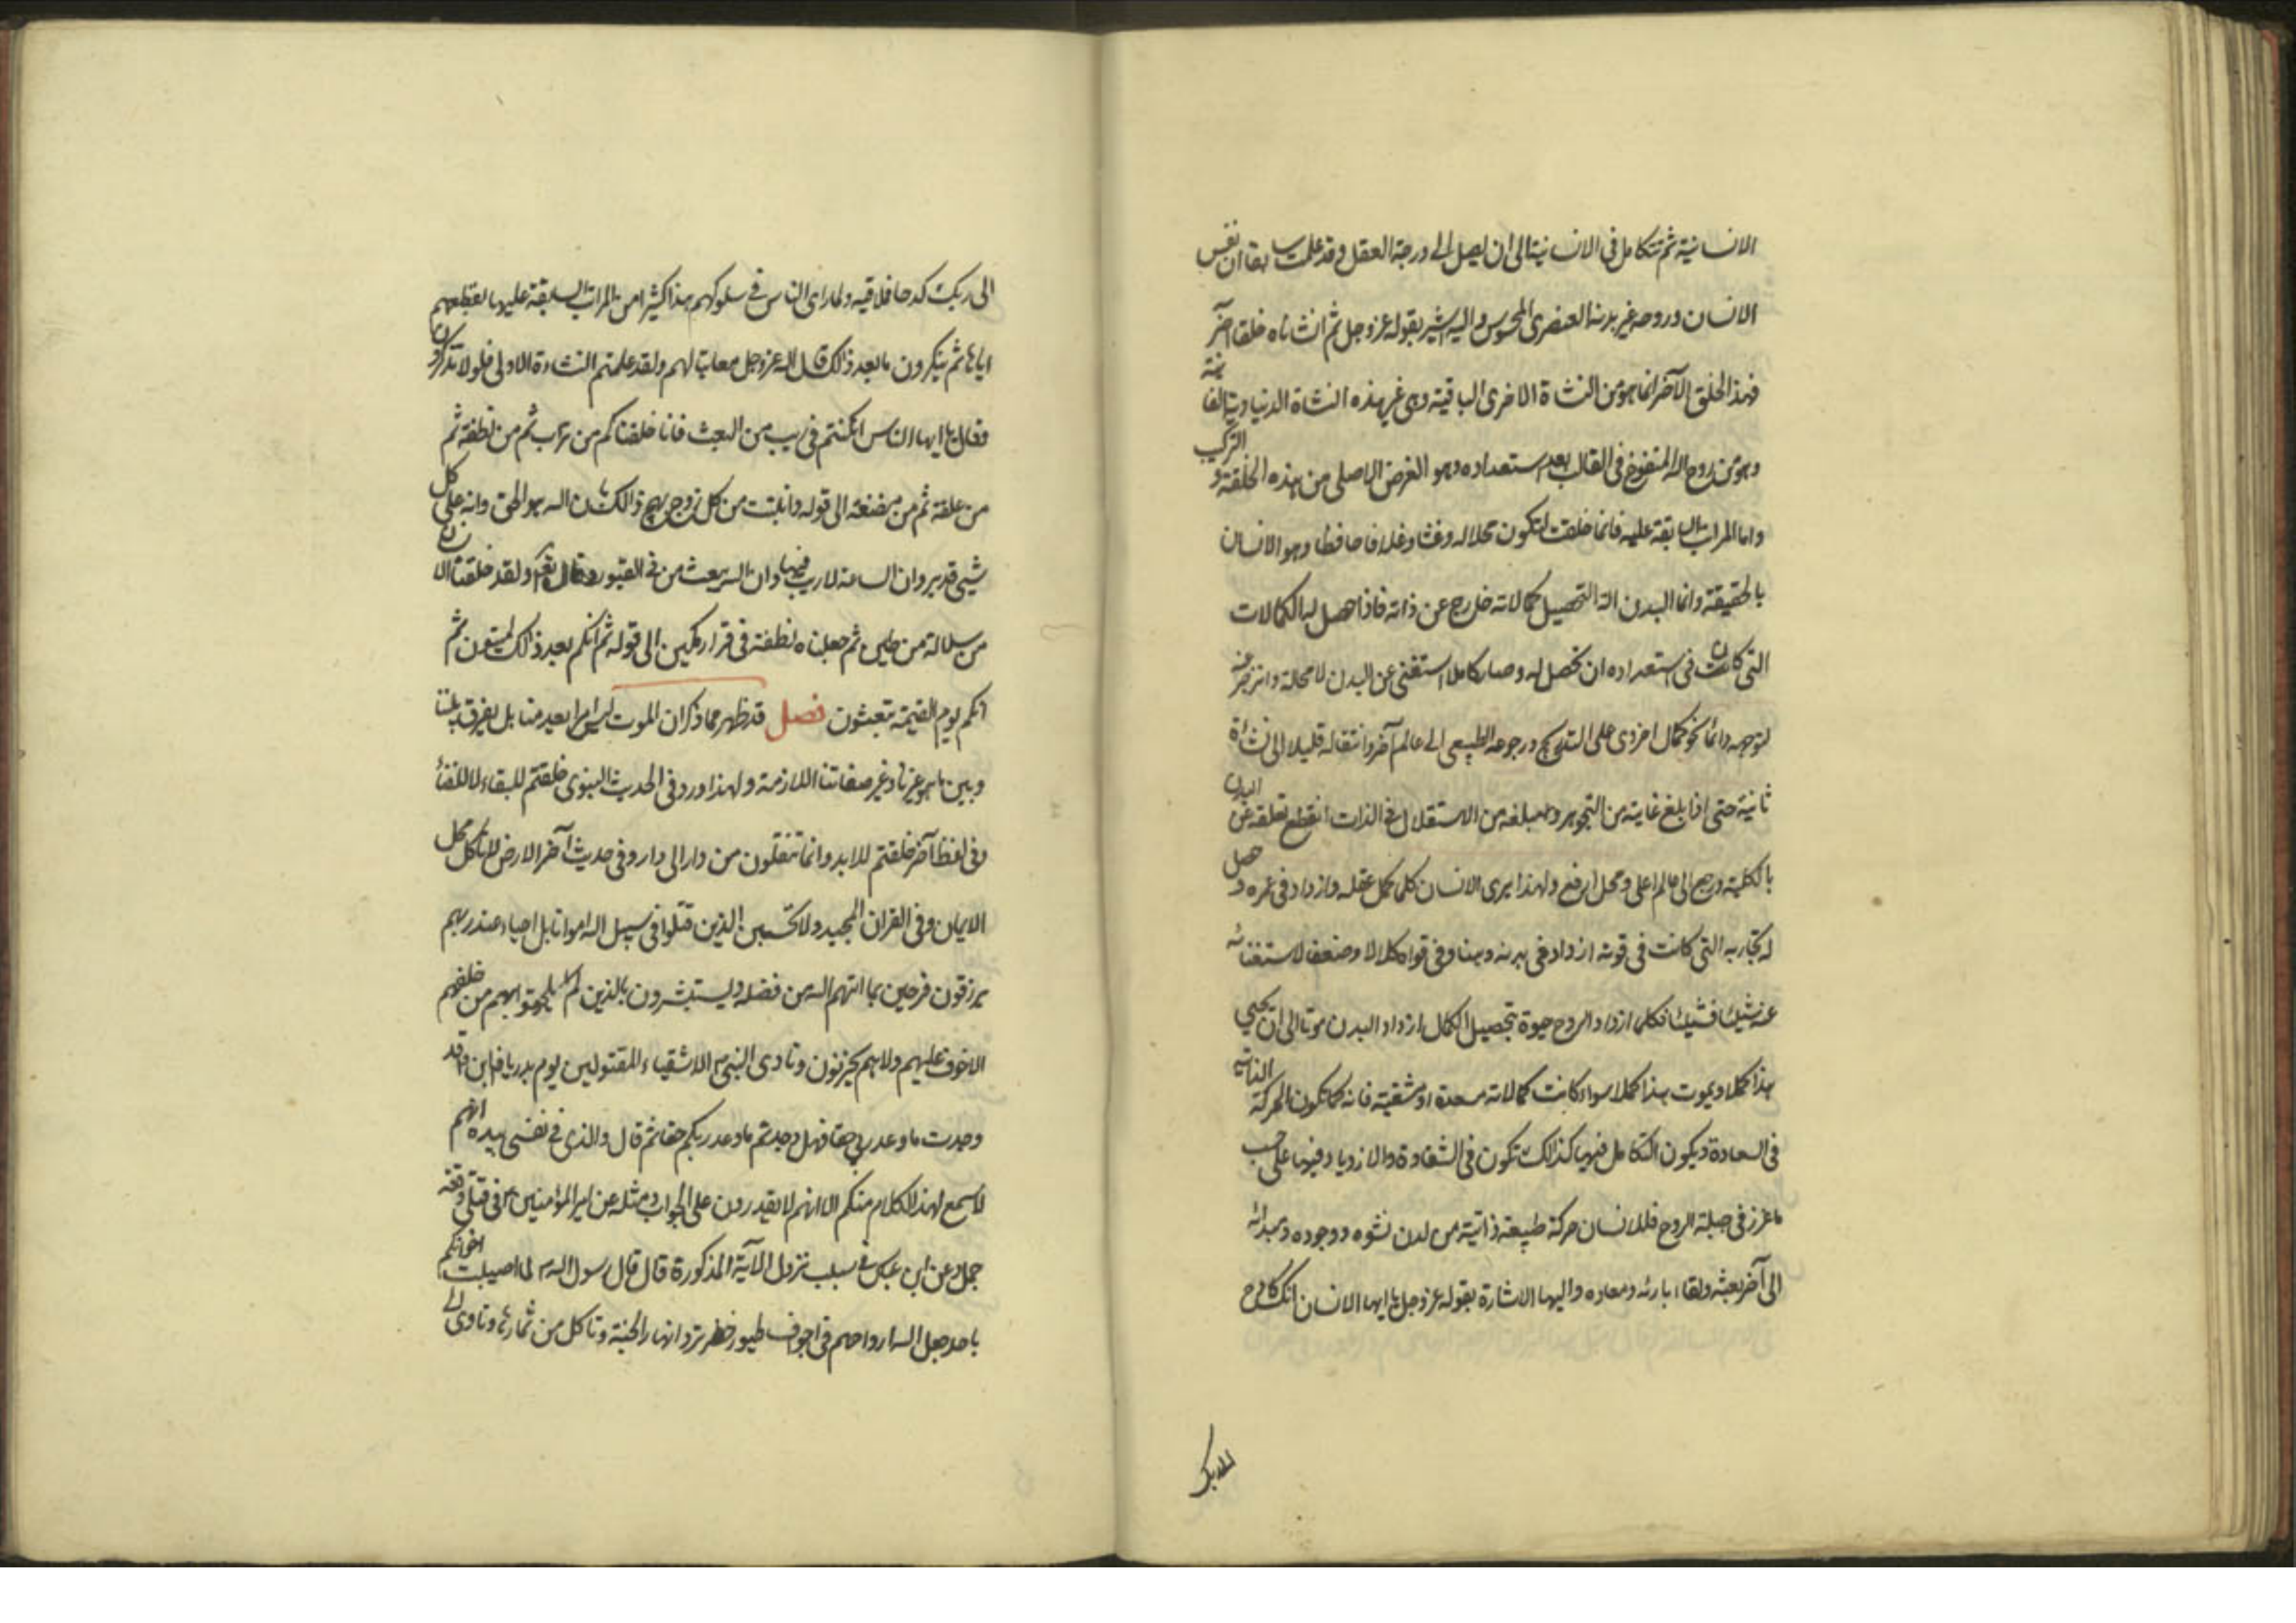 الانسانية ثم تتكامل في الانسانية الى ان يصل الى درجة العقل وقد علمت سابقا ان نفس
الانسان وروحه غير بدنه العنصري المحسوس واليه اشير بقوله عز وجل ثم انشاناه خلقا آخر
فهذا الخلق الآخر انما هو من النشاة الاخرى الباقية وهي غير هذه النشاة الدنياوية الفانية
وهو من روح الله المنفوخ في القالب بعد استعداده وهو الغرض الاصلي من هذه الخلقة والتركيب
واما المراتب السابقة عليه فانما خلقت لتكون محلا له وغشا وغلافا حافظا وهو الانسان
بالحقيقة وانما البدن آلة لتحصيل كمالاته خارج عن ذاته فاذا حصل له الكمالات
التي كانت في استعداده ان تحصل له وصار كاملا استغنى عن البدن لا محالة وانزجر عنه
لتوجهه دائما نحو كمال اخروي على التدريج ورجوعه الطبيعي الى عالم آخر وانتقاله قليلا الى نشاة
ثانية حتى اذا بلغ غايته من التجوهر ومبلغه من الاستقلال في الذات انقطع تعلقه عن البدن
بالكلية ورجع الى عالم اعلى ومحل ارفع ولهذا يرى الانسان كلما كمل عقله وازداد في عمره وحصل
له تجاربه التي كانت في قوته ازداد في بدنه وهنا وفي قواه كلالا وضعفا لاستغنائه
عنه شيئا فشيئا فكلما ازداد الروح حيوة بتحصيل الكمال ازداد البدن موتا الى ان يحيي
هذا كملا ويموت هذا كملا سواء كانت كمالاته مسعدة او مشقية فانه كما تكون الحركة الذاتية
في السعادة ويكون التكامل فيها كذلك تكون في الشقاوة والازدياد فيها على حسب
ما غرز في جبلة الروح فللانسان حركة طبيعة ذاتية من لدن نشوه ووجوده ومبدائه
الى آخر بعثه ولقاء بارئه ومعاده واليها الاشارة بقوله عز وجل يا ايها الانسان انك كادح
الى ربك
الى ربك كدحا فملاقيه ولما راى الناس في سلوكهم هذا كثيرا من المراتب السابقة عليها بقطعهم
اياها ثم ينكرون ما بعد ذلك قال الله عز وجل معاتبا لهم ولقد علمتم النشاءة الاولى فلولا تذكرون
وقال يا ايها الناس ان كنتم في ريب من البعث فانا خلقناكم من تراب ثم من نطفة ثم
من علقة ثم من مضغة الى قوله وانبتت من كل زوج بهيج ذالك بان الله هو الحق وانه على كل
شيئ قدير وان الساعة لا ريب فيها وان الله يبعث من في القبور وقال تعالى ولقد خلقنا الانسان
من سلالة من طين ثم جعلناه نطفة في قرار مكين الى قوله ثم انكم بعد ذالك لميتون ثم
انكم يوم القيمة تبعثون فصل قد ظهر مما ذكر ان الموت ليس امرا يعدمنا بل يفرق بيننا
وبين ما هو غيرنا وغير صفاتنا اللازمة ولهذا ورد في الحديث النبوي خلقتم للبقاء لا للفناء
وفي لفظ آخر خلقتم للابد وانما تنقلون من دار الى دار وفي حديث آخر الارض لا تاكل محل
الايمان وفي القران المجيد ولا تحسبن الذين قتلوا في سبيل الله امواتا بل احياء عند ربهم
يرزقون فرحين بما اتيهم الله من فضله ويستبشرون بالذين لم يلحقوا بهم من خلفهم
الا خوف عليهم ولا هم يحزنون ونادى النبي الاشقياء المقتولين يوم بدر يا فلان قد
وجدت ما وعد ربي حقا فهل وجدتم ما وعد ربكم حقا ثم قال والذي نفسي بيده انهم
لاسمع لهذا الكلام منكم الا انهم لا يقدرون على الجواب ومثله عن امير المؤمنين في قتلى وقعة
جمل وعن ابن عباس في سبب نزول الآية المذكورة قال قال رسول الله لما اصيبت اخوانكم
باحد جعل الله ارواحهم في اجواف طيور خضر ترد انهار الجنة وتاكل من ثمارها وتاوى الى